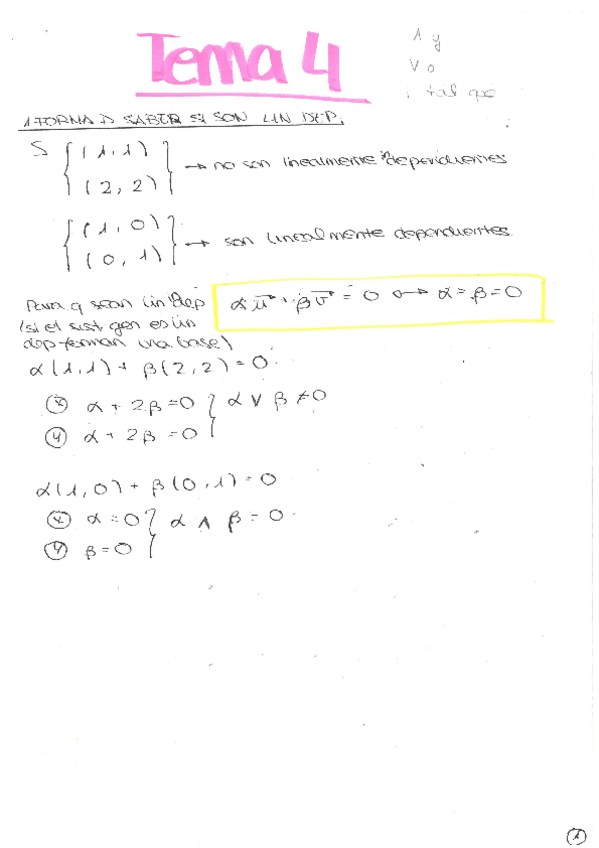 Tema 4
∧ y
∨ o
: tal que
1 FORMA D SABER SI SON LIN DEP.
S { (1,1)
(2,2) } → no son linealmente dependientes
{ (1,0)
(0,1) } → son linealmente dependientes
Para q sean lin dep
(si el sist gen es lin
dep forman una base)
α u⃗ + β v⃗ = 0 ↔ α = β = 0
α(1,1) + β(2,2) = 0
ⓧ α + 2β = 0 } α ∨ β ≠ 0
ⓨ α + 2β = 0
α(1,0) + β(0,1) = 0
ⓧ α = 0 } α ∧ β = 0
ⓨ β = 0
①